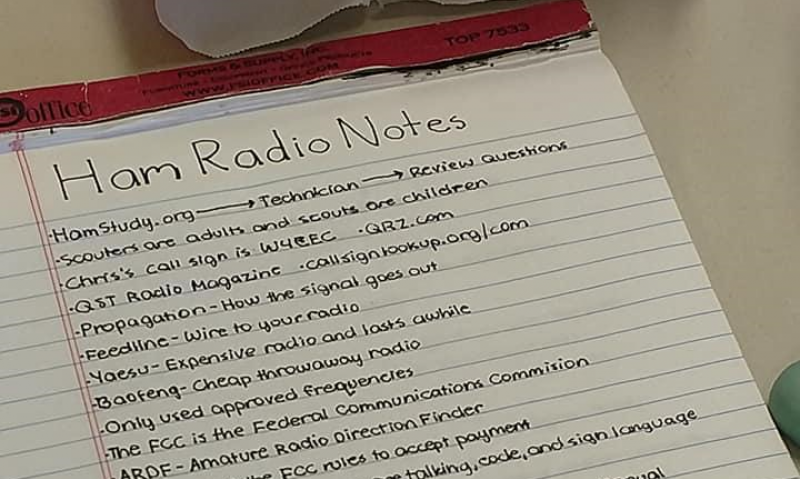 TOP 7533
FORMS & SUPPLY, INC.
WWW.FSIOFFICE.COM
office
Ham Radio Notes
·HamStudy.org → Technician → Review Questions
·Scouters are adults and scouts are children
·Chris's call sign is ·QRZ.com
·QST Radio Magazine ·callsignlookup.org/com
·Propagation - How the signal goes out
·Feedline - Wire to your radio
·Yaesu - Expensive radio and lasts awhile
·Baofeng - Cheap throwaway radio
·Only used approved frequencies
·The FCC is the Federal Communications Commision
·ARDF - Amature Radio Direction Finder
FCC rules to accept payment
talking, code, and sign language